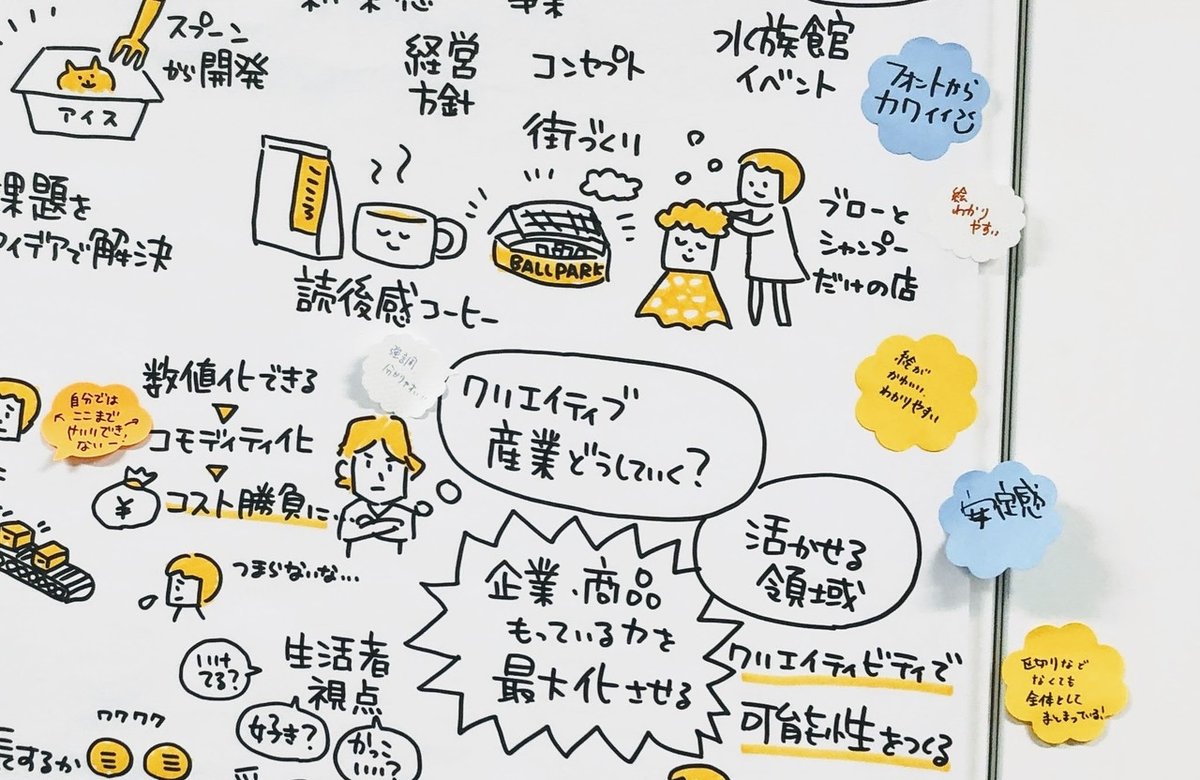 スプーン
から開発
アイス
経営
方針
コンセプト
水族館
イベント
フォントから
カワイイ
街づくり
絵
わかり
やすい
課題を
イデアで解決
BALLPARK
ブローと
シャンプー
だけの店
読後感コーヒー
強調
分かりやすい…
絵が
かわいい
わかりやすい
数値化できる
コモディティ化
コスト勝負に…
¥
自分では
ここまで
やりりでき
ないー
クリエイティブ
産業どうしていく?
安定感
活かせる
領域
つまらないな…
企業・商品
もっている力を
最大化させる
いけ
てる?
生活者
視点
好き?
かっこ
いい?
クリエイティビティで
可能性をつくる
区切りなど
なくても
全体として
まとまっている!
ワクワク
するか